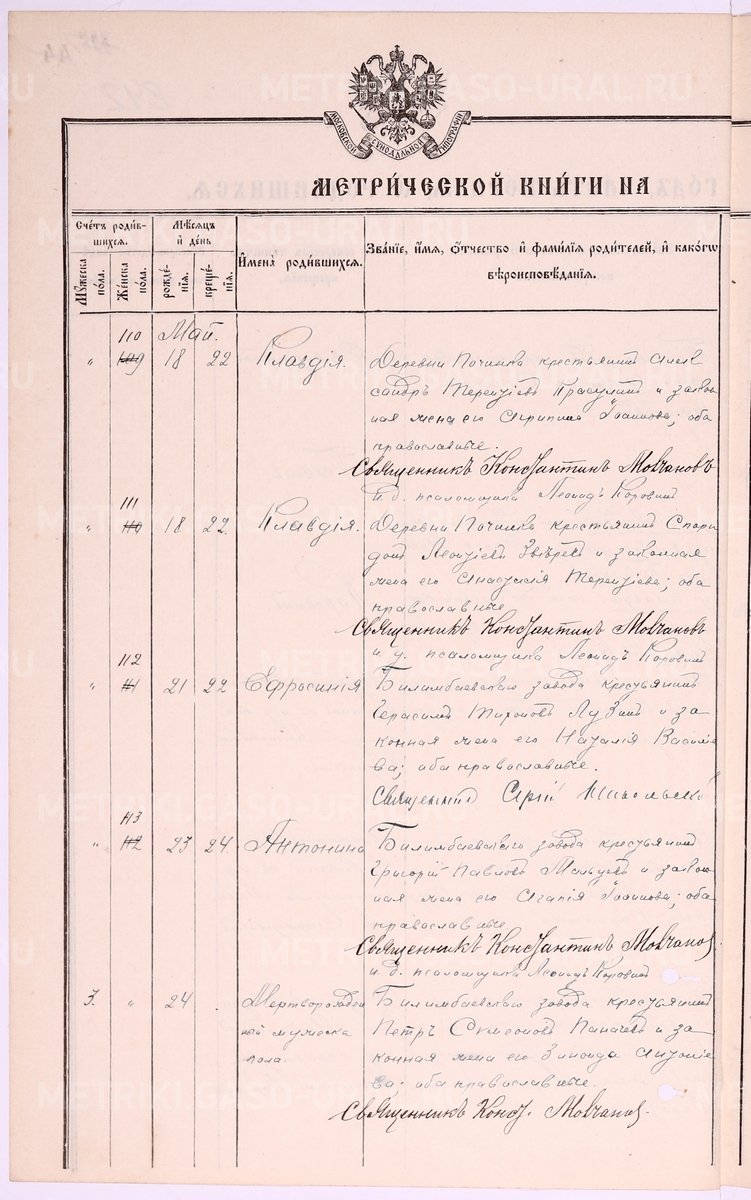 МОСКОВСКОЙ СѴНОДАЛЬНОЙ ТИПОГРАФІИ
МЕТРИ́ЧЕСКОЙ КНИ́ГИ НА
Сче́тъ роди́в-
шихся.
Мѣсяцъ
и̑ де́нь
И̑мена̀ роди́вшихся.
Зва́нїе, и̑́мя, ѻ҆́тчество и̑ фами́лїя роди́телей, и̑ како́гѡ
вѣроисповѣ́данїя.
Мꙋжеска по́ла.
Же́нска по́ла.
рожде́нїя.
креще́нїя.
110 Май.
" 109 18 22 Клавдія. Деревни Починка крестьянинъ Алек
сандръ Терентіевъ Красулинъ и закон
ная жена его Агрипина Іоаннова; оба
православные.
Священникъ Константинъ Мовчановъ
и. д. псаломщика Леонидъ Коровинъ
111
" 110 18 22. Клавдія. Деревни Починка крестьянинъ Спири
донъ Леонтіевъ Звѣревъ и законная
жена его Анастасія Терентіева; оба
православные
Священникъ Константинъ Мовчановъ
и. д. псаломщика Леонидъ Коровинъ
112
" 111 21 22 Ефросинія Билимбаевскаго завода крестьянинъ
Герасимъ Тихоновъ Лузинъ и за
конная жена его Наталія Василіе
ва; оба православные.
Священникъ Сергій Никольскій
113
" 112 23 24 Антонина Билимбаевскаго завода крестьянинъ
Григорій Павловъ Мальцевъ и закон
ная жена его Агапія Іоаннова; оба
православные
Священникъ Константинъ Мовчановъ
и. д. псаломщика Леонидъ Коровинъ
3. " 24 . Мертворожден Билимбаевскаго завода крестьянинъ
ный мужеска Петръ Симеоновъ и за
пола. конная жена его Зиновда Антоніе
ва; оба православные.
Священникъ Конст. Мовчановъ.
METRIKI.GASO-URAL.RU